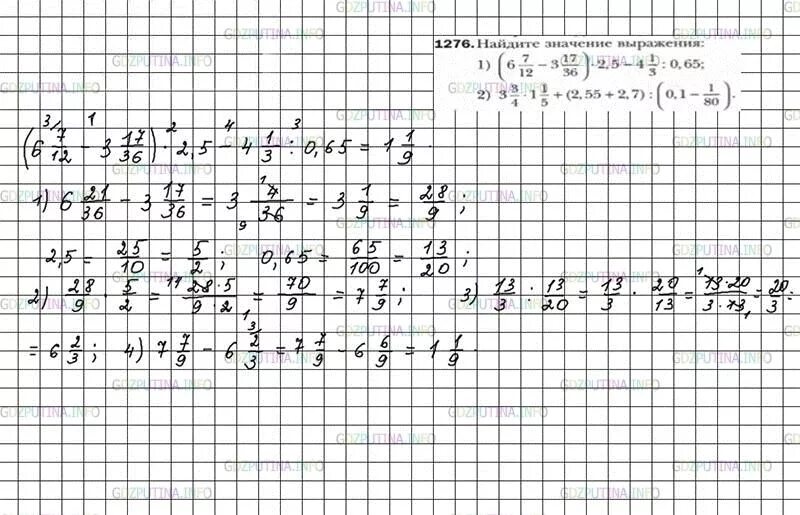 1276. Найдите значение выражения:
1) (6 7/12 − 3 17/36) · 2,5 − 4 1/3 : 0,65;
2) 3 3/4 · 1 1/5 + (2,55 + 2,7) : (0,1 − 1/80).
(6 7/12 − 3 17/36) · 2,5 − 4 1/3 : 0,65 = 1 1/9.
1) 6 21/36 − 3 17/36 = 3 4/36 = 3 1/9 = 28/9;
2,5 = 25/10 = 5/2; 0,65 = 65/100 = 13/20;
2) 28/9 · 5/2 = 28·5/9·2 = 70/9 = 7 7/9; 3) 13/3 : 13/20 = 13/3 · 20/13 = 13·20/3·13 = 20/3 =
= 6 2/3; 4) 7 7/9 − 6 2/3 = 7 7/9 − 6 6/9 = 1 1/9.
GDZPUTINA.INFO